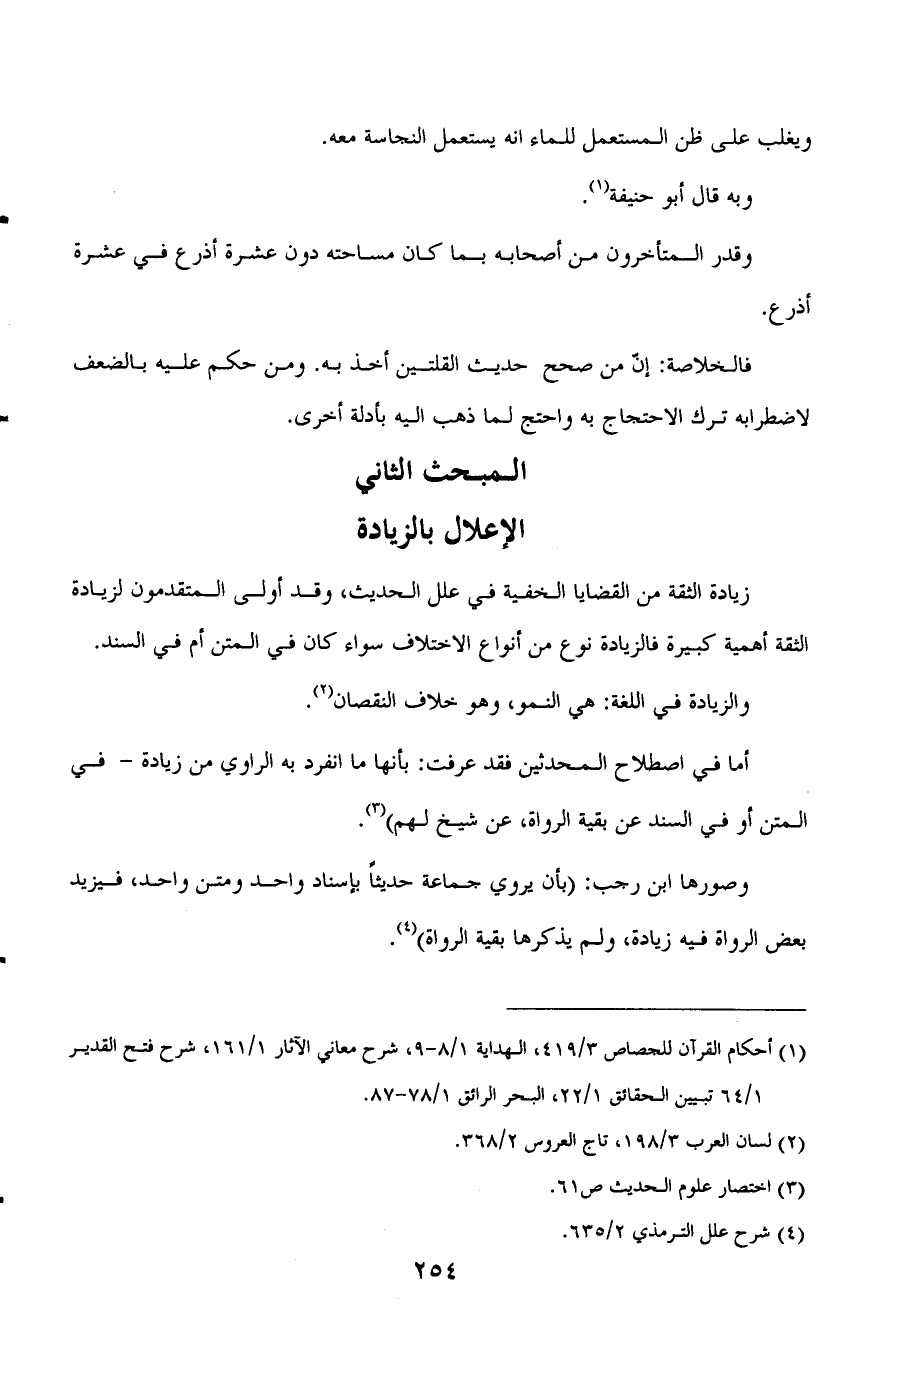 ويغلب على ظن المستعمل للماء انه يستعمل النجاسة معه.
وبه قال أبو حنيفة(١).
وقدر المتأخرون من أصحابه بما كان مساحته دون عشرة أذرع في عشرة
أذرع.
فالخلاصة: إنّ من صحح حديث القلتين أخذ به. ومن حكم عليه بالضعف
لاضطرابه ترك الاحتجاج به واحتج لما ذهب اليه بأدلة أخرى.
المبحث الثاني
الإعلال بالزيادة
زيادة الثقة من القضايا الخفية في علل الحديث، وقد أولى المتقدمون لزيادة
الثقة أهمية كبيرة فالزيادة نوع من أنواع الاختلاف سواء كان في المتن أم في السند.
والزيادة في اللغة: هي النمو، وهو خلاف النقصان(٢).
أما في اصطلاح المحدثين فقد عرفت: بأنها ما انفرد به الراوي من زيادة – في
المتن أو في السند عن بقية الرواة، عن شيخ لهم)(٣).
وصورها ابن رجب: (بأن يروي جماعة حديثاً بإسناد واحد ومتن واحد، فيزيد
بعض الرواة فيه زيادة، ولم يذكرها بقية الرواة)(٤).
(١) أحكام القرآن للجصاص ٤١٩/٣، الهداية ٨/١-٩، شرح معاني الآثار ١٦١/١، شرح فتح القدير
٦٤/١ تبيين الحقائق ٢٢/١، البحر الرائق ٧٨/١-٨٧.
(٢) لسان العرب ١٩٨/٣، تاج العروس ٣٦٨/٢.
(٣) اختصار علوم الحديث ص٦١.
(٤) شرح علل الترمذي ٦٣٥/٢.
٢٥٤